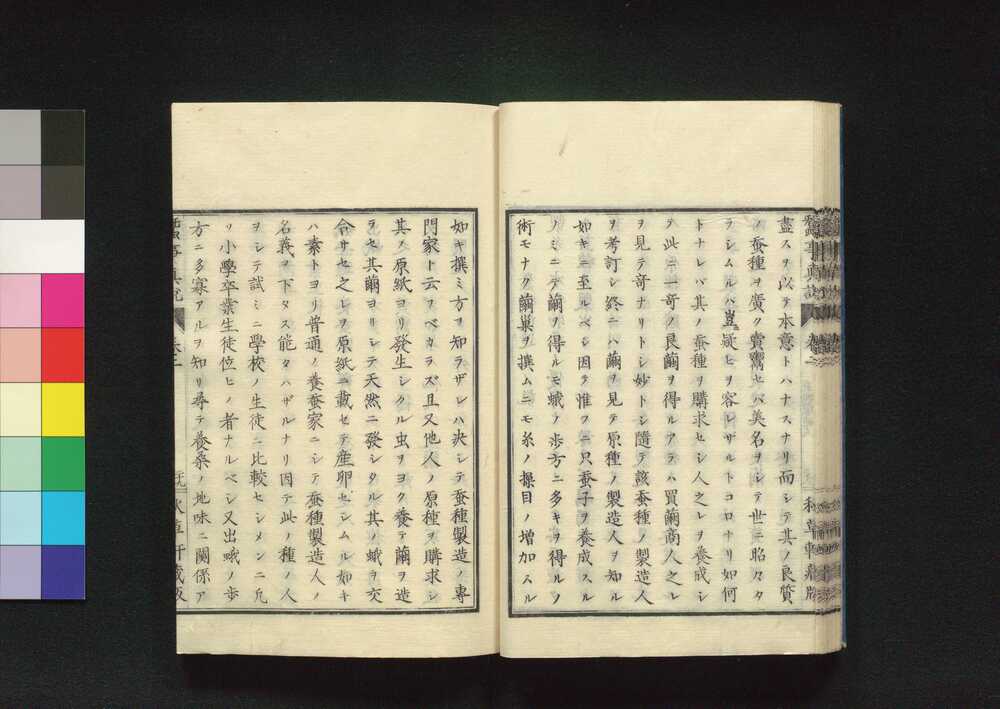 盡スヲ以テ本意トハナスナリ而シテ其ノ良質
ノ蚕種ヲ廣ク賣鬻セバ美名ヲシテ世ニ昭々タ
ラシムルハ豈疑ヒヲ容レザルトコロナリ如何
トナレバ其ノ蚕種ヲ購求セシ人之レヲ養成シ
テ此ニ一竒ノ良繭ヲ得ルアラハ買繭商人之レ
ヲ見テ竒ナリトシ妙トシ隨テ該蚕種ノ製造人
ヲ考訂シ終ニハ繭ヲ見テ原種ノ製造人ヲ知ル
如キニ至ルベシ因テ惟フニ只蚕子ヲ養成スル
ノミニテ繭ノ得ルモ蛾ノ歩方ニ多キヲ得ルノ
術モナク繭巣ヲ撰ムニモ糸ノ操目ノ增加スル
如キ撰ミ方ヲ知ラザレハ决シテ蚕種製造ノ專
門家ト云フベカラズ且又他人ノ原種ヲ購求シ
其ノ原紙ヨリ發生シタル虫ヲヨク養テ繭ヲ造
ラセ其繭ヨリシテ天然ニ發シタル其ノ蛾ヲ交
合サセ之レヲ原紙ニ載セテ産卵セシムル如キ
ハ素トヨリ普通ノ養蚕家ニシテ蚕種製造人ノ
名義ヲ下タス能タハザルナリ因テ此ノ種ノ人
ヲシテ試ミニ學校ノ生徒ニ比較セシメンニ凢
ソ小學卒業生徒位ヒノ者ナルベシ又出蛾ノ歩
方ニ多寡アルヲ知リ尋テ養桑ノ地味ニ関係ア